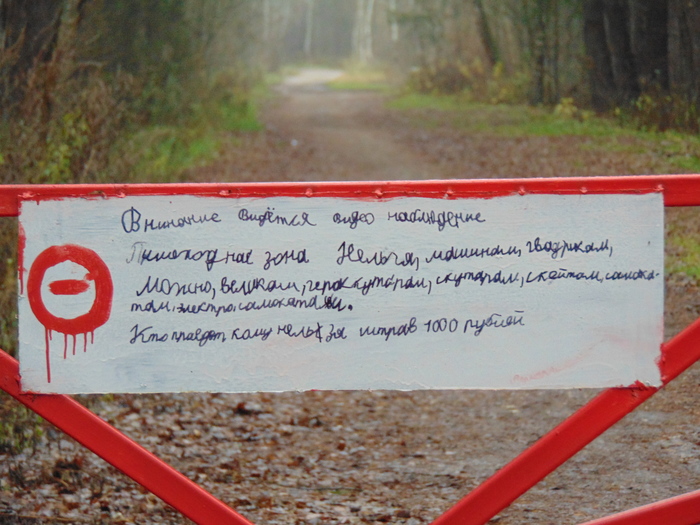 Внимание видётся видео наблюдение
Пишеходнае зона Нельзя, машинам, гвадрикам,
Можно, великам, гераскутарам, скутарам, скейтам, самока-
там, электро, самокатами.
Кто праедет каму нельзя штрав 1000 рублей